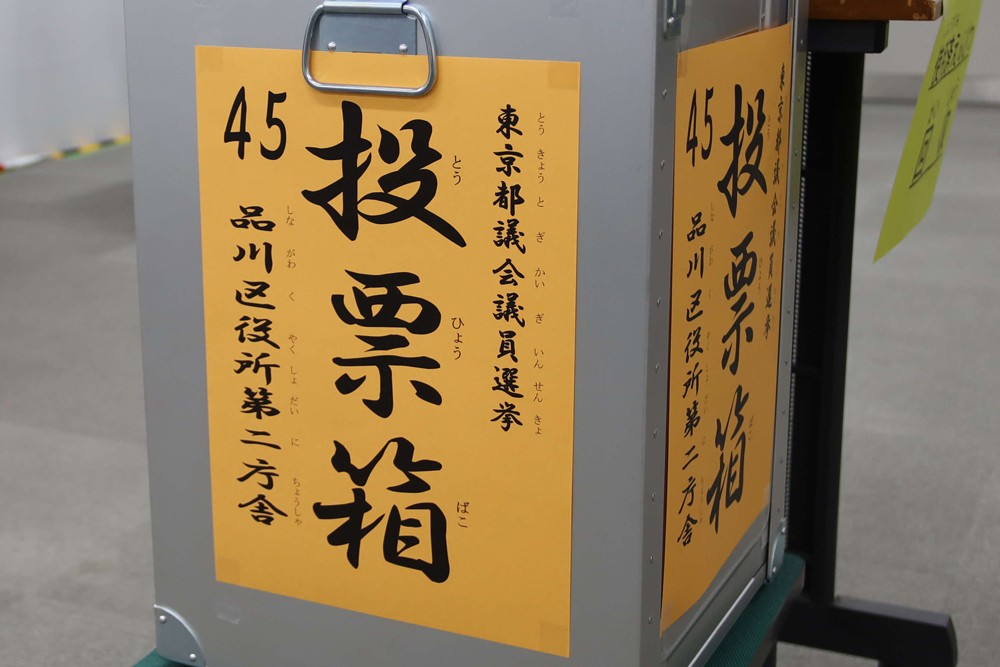 東京都議会議員選挙
とうきょうとぎかいぎいんせんきょ
投票箱
とうひょうばこ
45
品川区役所第二庁舎
しながわくやくしょだいにちょうしゃ
東京都議会議員選挙
投票箱
45
品川区役所第二庁舎